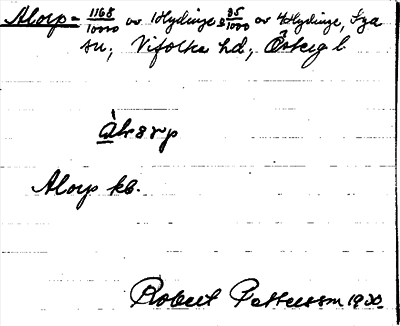 Alorp = 1168/10000 av 1 Hydinge o 85/1000 av 4 Hydinge, Sya
sn; Vifolka hd; Österg l
àlsrp
Alorp kb.
Robert Pettersson 1930